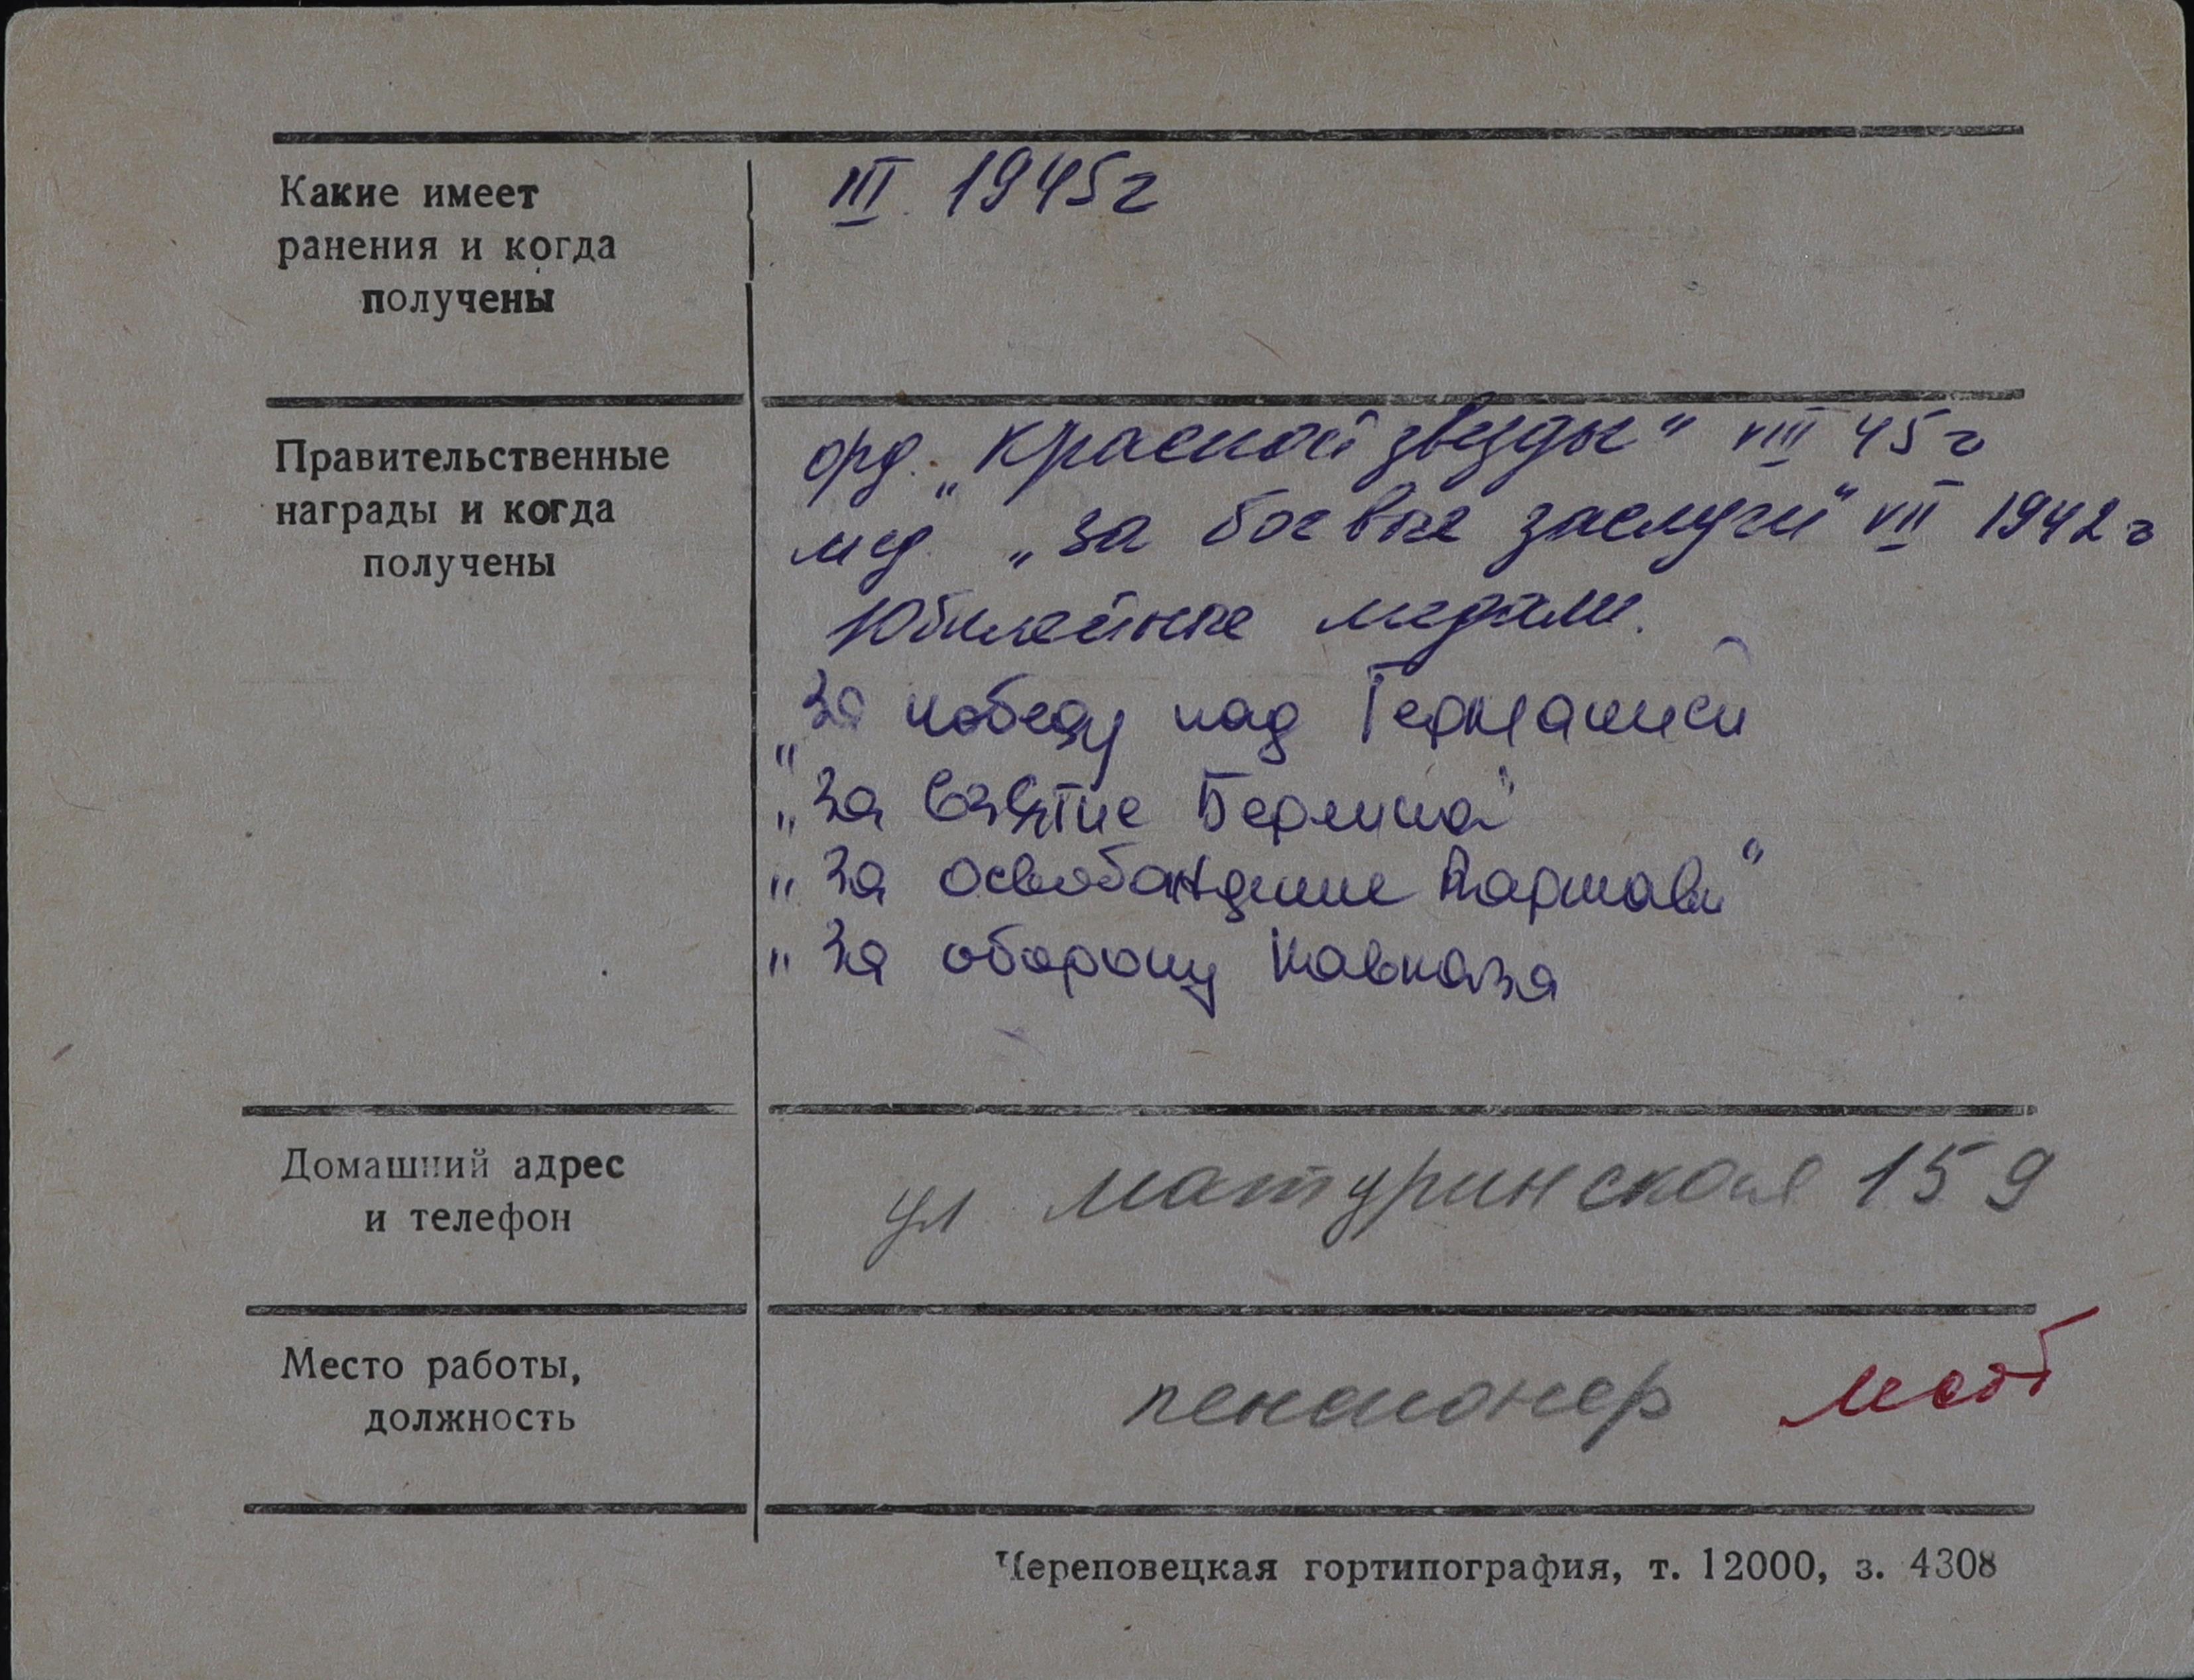 Какие имеет
ранения и когда
получены
III. 1945г
Правительственные
награды и когда
получены
орд. „Красной звезды" VIII 45г
мед. „за боевые заслуги" VII 1942г
Юбилейные медали.
„За победу над Германией
„За взятие Берлина"
„За освобождение Варшавы"
„За оборону Кавказа
Домашний адрес
и телефон
ул матуринская 159
Место работы,
должность
пенсионер
Череповецкая гортипография, т. 12000, з. 4308